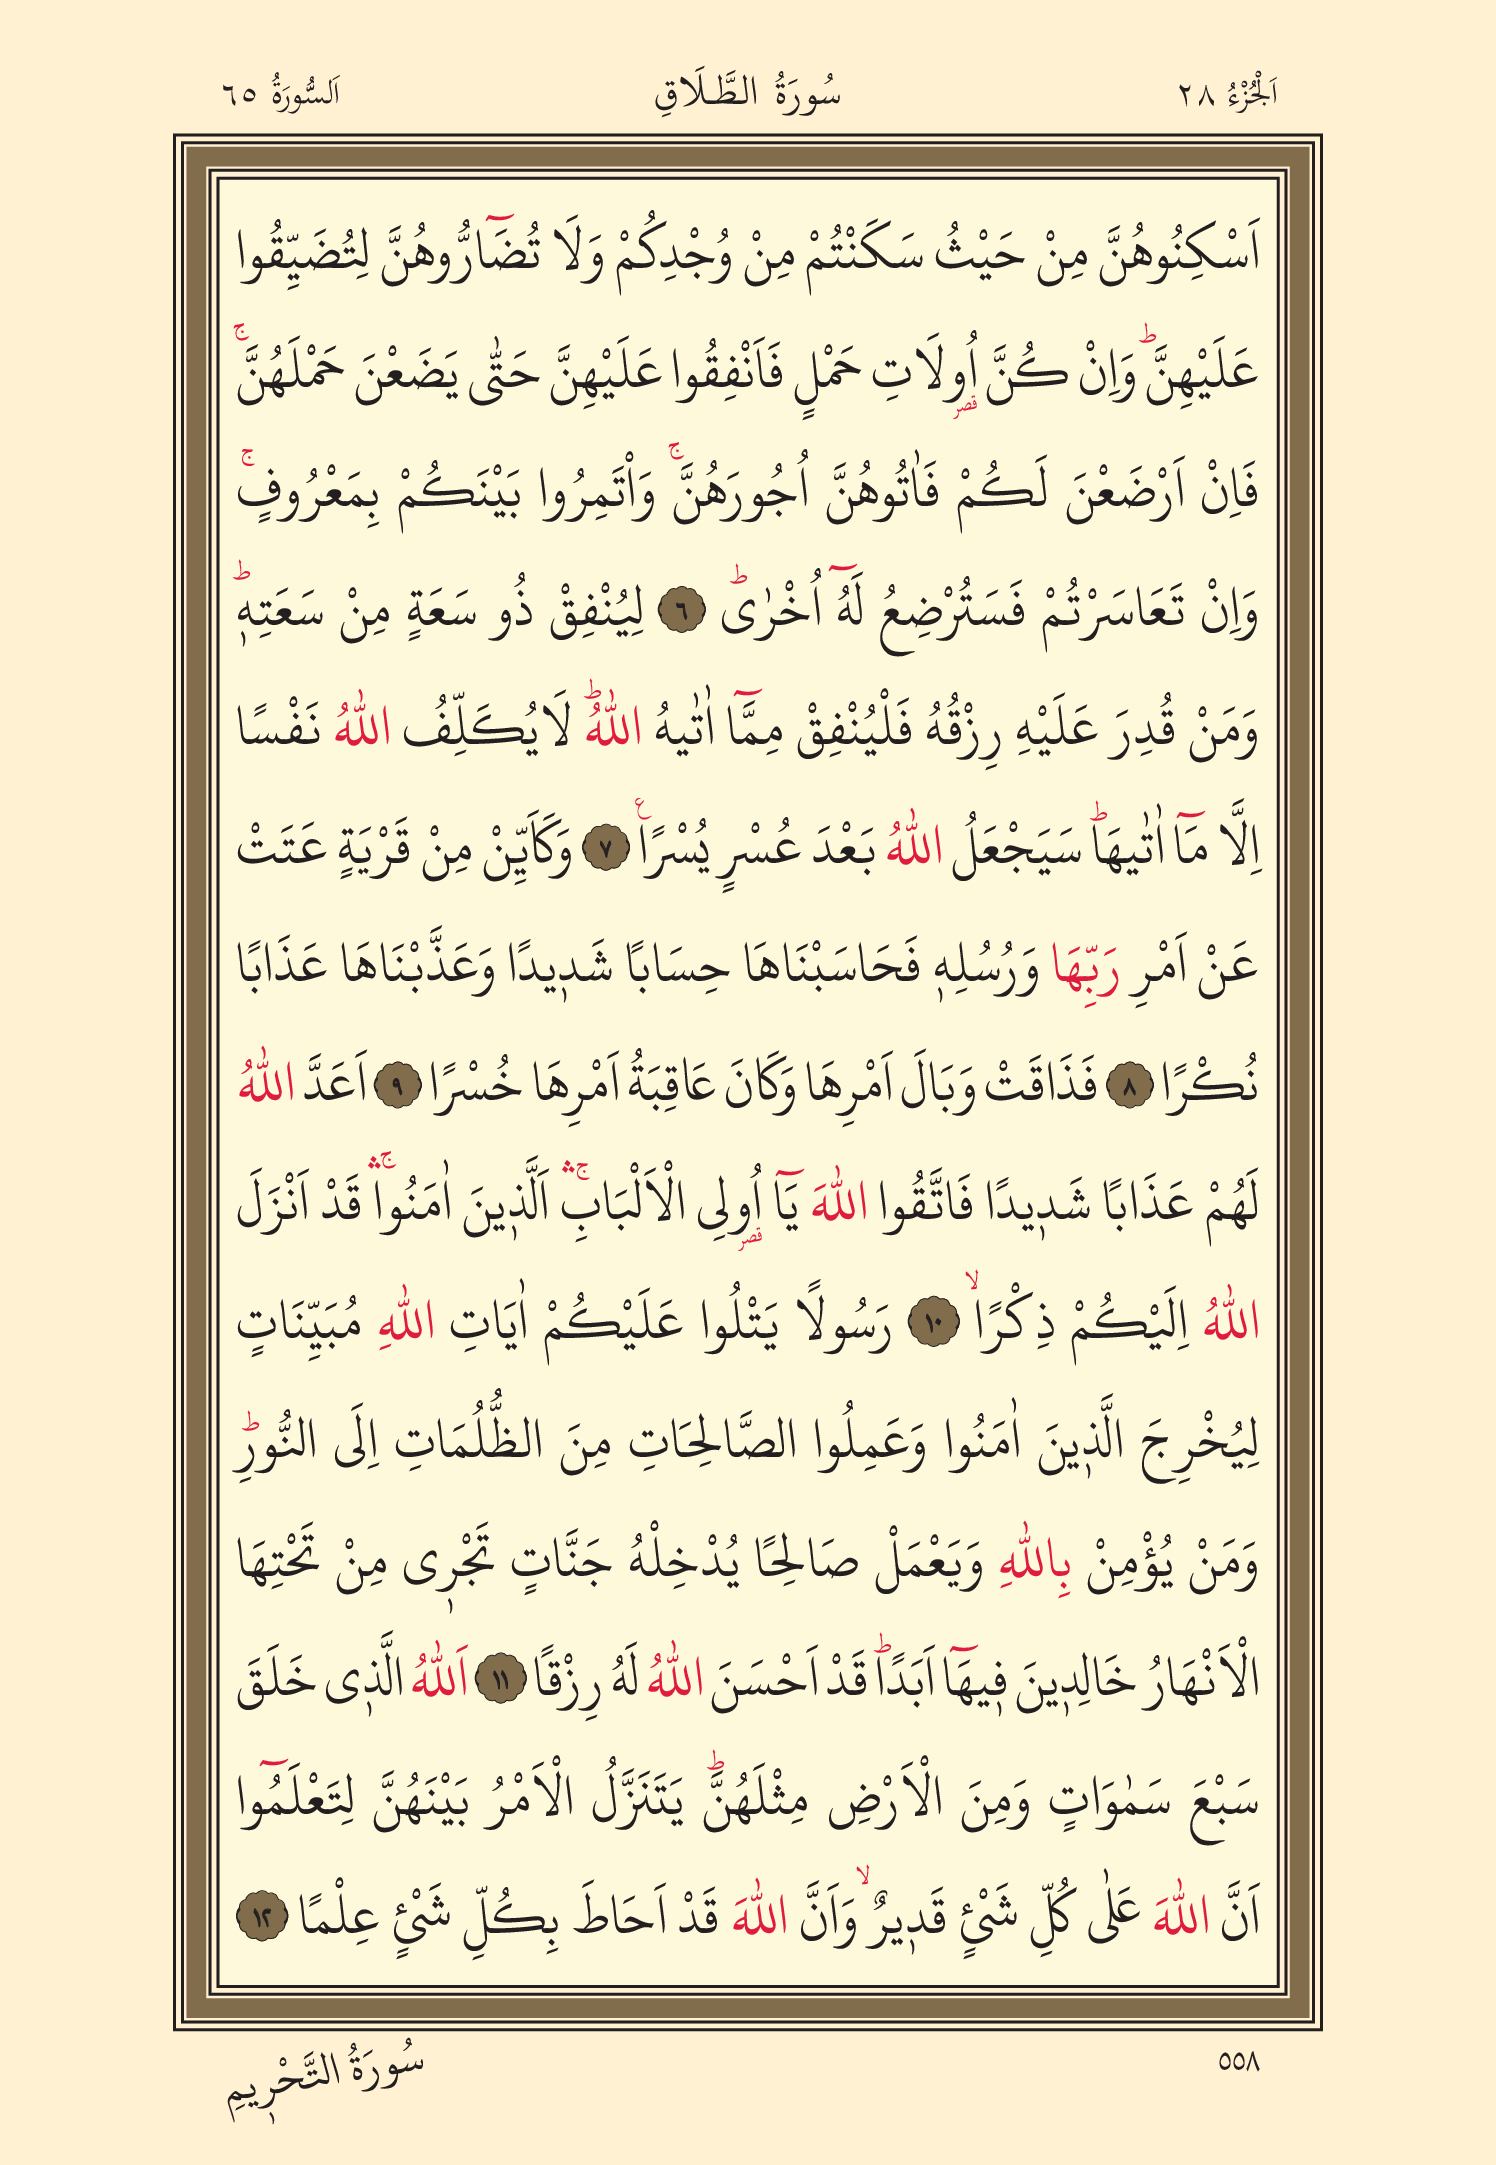 اَلْجُزْءُ ٢٨
سُورَةُ الطَّلَاقِ
اَلسُّورَةُ ٦٥
اَسْكِنُوهُنَّ مِنْ حَيْثُ سَكَنْتُمْ مِنْ وُجْدِكُمْ وَلَا تُضَٓارُّوهُنَّ لِتُضَيِّقُوا
عَلَيْهِنَّۜ وَاِنْ كُنَّ اُو۬لَاتِ حَمْلٍ فَاَنْفِقُوا عَلَيْهِنَّ حَتّٰى يَضَعْنَ حَمْلَهُنَّۚ
فَاِنْ اَرْضَعْنَ لَكُمْ فَاٰتُوهُنَّ اُجُورَهُنَّۚ وَاْتَمِرُوا بَيْنَكُمْ بِمَعْرُوفٍۚ
وَاِنْ تَعَاسَرْتُمْ فَسَتُرْضِعُ لَهُٓ اُخْرٰىۜ ﴿٦﴾ لِيُنْفِقْ ذُو سَعَةٍ مِنْ سَعَتِه۪ۜ
وَمَنْ قُدِرَ عَلَيْهِ رِزْقُهُ فَلْيُنْفِقْ مِمَّٓا اٰتٰيهُ اللّٰهُۜ لَا يُكَلِّفُ اللّٰهُ نَفْسًا
اِلَّا مَٓا اٰتٰيهَاۜ سَيَجْعَلُ اللّٰهُ بَعْدَ عُسْرٍ يُسْرًا۟ ﴿٧﴾ وَكَاَيِّنْ مِنْ قَرْيَةٍ عَتَتْ
عَنْ اَمْرِ رَبِّهَا وَرُسُلِه۪ فَحَاسَبْنَاهَا حِسَابًا شَد۪يدًا وَعَذَّبْنَاهَا عَذَابًا
نُكْرًا ﴿٨﴾ فَذَاقَتْ وَبَالَ اَمْرِهَا وَكَانَ عَاقِبَةُ اَمْرِهَا خُسْرًا ﴿٩﴾ اَعَدَّ اللّٰهُ
لَهُمْ عَذَابًا شَد۪يدًا فَاتَّقُوا اللّٰهَ يَٓا اُو۬لِى الْاَلْبَابِۚۛ اَلَّذ۪ينَ اٰمَنُواۚۛ قَدْ اَنْزَلَ
اللّٰهُ اِلَيْكُمْ ذِكْرًاۙ ﴿١٠﴾ رَسُولًا يَتْلُوا عَلَيْكُمْ اٰيَاتِ اللّٰهِ مُبَيِّنَاتٍ
لِيُخْرِجَ الَّذ۪ينَ اٰمَنُوا وَعَمِلُوا الصَّالِحَاتِ مِنَ الظُّلُمَاتِ اِلَى النُّورِۜ
وَمَنْ يُؤْمِنْ بِاللّٰهِ وَيَعْمَلْ صَالِحًا يُدْخِلْهُ جَنَّاتٍ تَجْر۪ى مِنْ تَحْتِهَا
الْاَنْهَارُ خَالِد۪ينَ ف۪يهَٓا اَبَدًاۜ قَدْ اَحْسَنَ اللّٰهُ لَهُ رِزْقًا ﴿١١﴾ اَللّٰهُ الَّذ۪ى خَلَقَ
سَبْعَ سَمٰوَاتٍ وَمِنَ الْاَرْضِ مِثْلَهُنَّۜ يَتَنَزَّلُ الْاَمْرُ بَيْنَهُنَّ لِتَعْلَمُٓوا
اَنَّ اللّٰهَ عَلٰى كُلِّ شَىْءٍ قَد۪يرٌۙ وَاَنَّ اللّٰهَ قَدْ اَحَاطَ بِكُلِّ شَىْءٍ عِلْمًا ﴿١٢﴾
٥٥٨
سُورَةُ التَّحْر۪يمِ